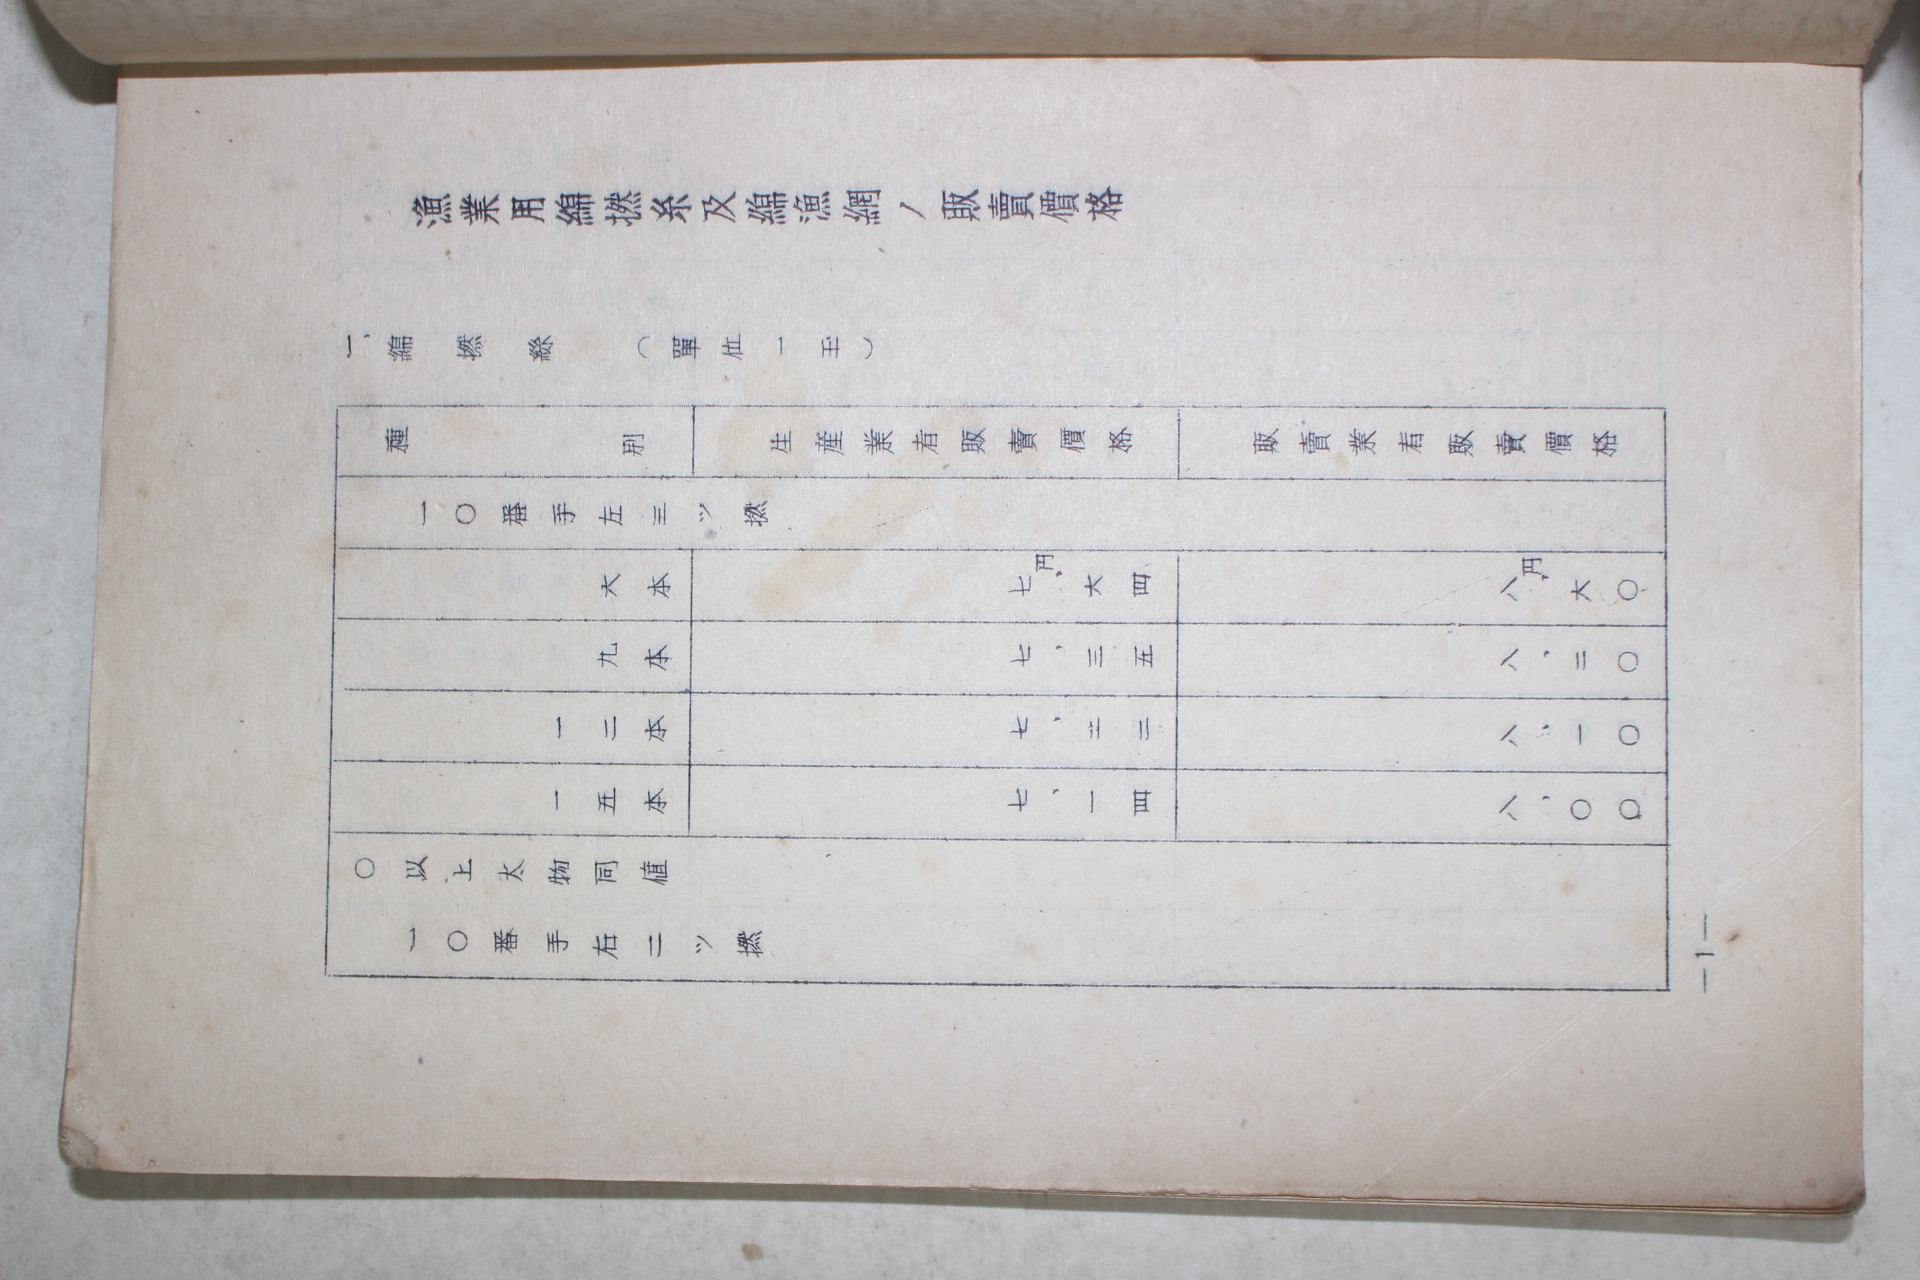 漁業用綿撚糸及綿漁網ノ販賣價格
一、綿撚絲 （單位一玉）
種別 生産業者販賣價格 販賣業者販賣價格
一〇番手左三ツ撚
六本 七円、六四 八円、六〇
九本 七、三五 八、二〇
一二本 七、三二 八、一〇
一五本 七、一四 八、〇〇
〇以上太物同値
一〇番手右二ツ撚
—1—